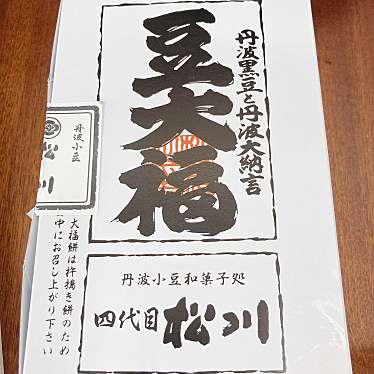 丹波黒豆と丹波大納言
豆大福
丹波小豆
松川
大福餅は杵搗き餅のため
中にお召し上がり下さい
丹波小豆和菓子処
四代目 松川